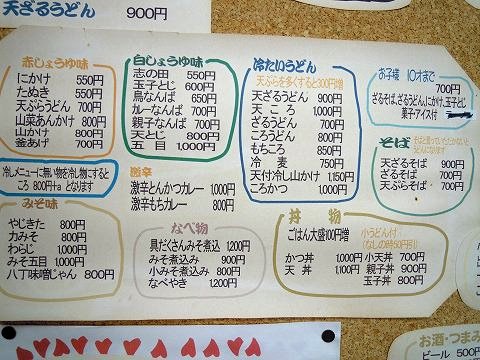 天ざるうどん 900円
赤しょうゆ味
にかけ 550円
たぬき 550円
天ぷらうどん 700円
山菜あんかけ 800円
山かけ 800円
釜あげ 700円
白しょうゆ味
志の田 550円
玉子とじ 600円
鳥なんば 650円
カレーなんば 700円
親子なんば 700円
天とじ 800円
五目 1,000円
冷たいうどん
天ぷらを多くすると300円増
天ざるうどん 900円
天ころ 1,000円
ざるうどん 700円
ころうどん 800円
もちころ 850円
冷麦 750円
天付冷し山かけ 1,150円
ころかつ 1,000円
お子様 10才まで
700円
ざるそば、ざるうどん、にかけ、玉子とじ
菓子・アイス付
そば
そばと言っていただかないと
うどんになります
天ざるそば 900円
ざるそば 700円
天ぷらそば 700円
冷しメニューに無い物を冷し物にすると
ころ 800円+a となります
激辛
激辛とんかつカレー 1,000円
激辛もちカレー 800円
みそ味
やじきた 800円
力みそ 800円
わらじ 1,000円
みそ五目 1,000円
八丁味噌じゃん 800円
なべ物
具だくさんみそ煮込 1,200円
みそ煮込 900円
小みそ煮込 800円
なべやき 1,200円
丼物
小うどん付
(なしの時50円引)
ごはん大盛100円増
かつ丼 1,000円
天丼 1,100円
小天丼 700円
親子丼 900円
玉子丼 800円
お酒・つまみ
ビール 500円